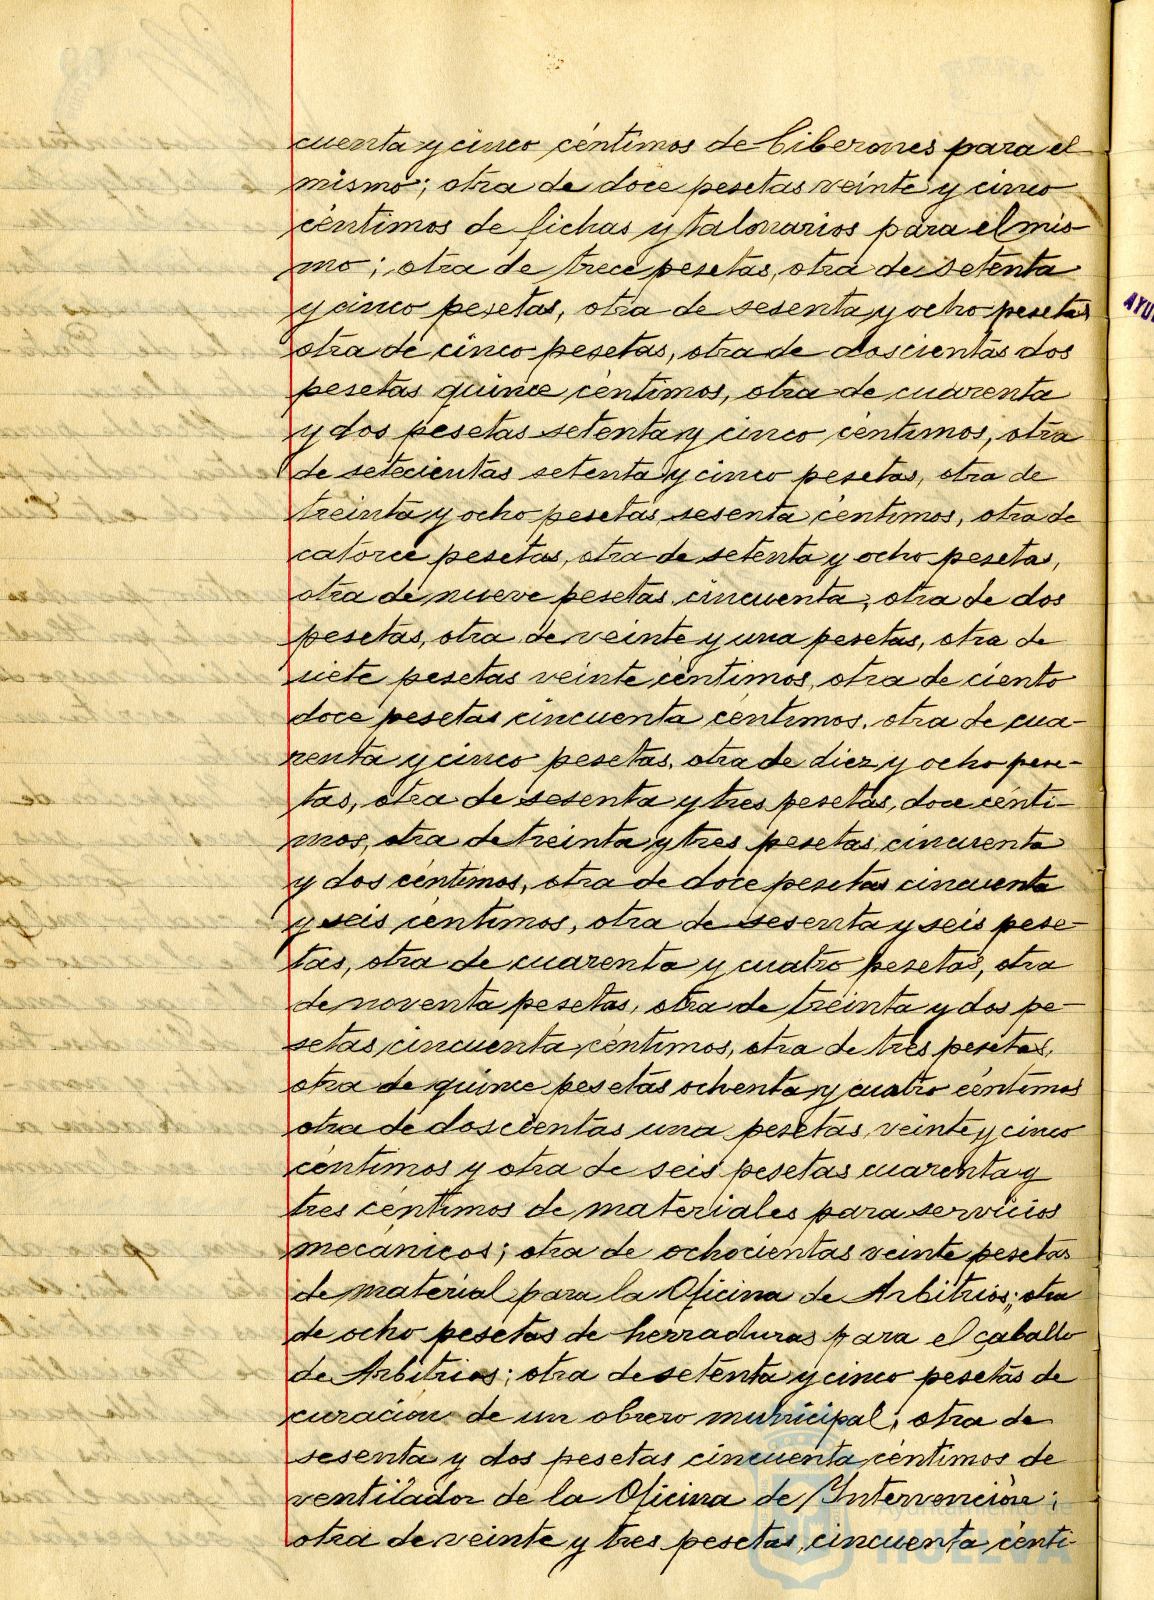 cuenta y cinco céntimos de biberones para el
mismo; otra de doce pesetas veinte y cinco
céntimos de fichas y talonarios para el mis-
mo; otra de trece pesetas, otra de setenta
y cinco pesetas, otra de sesenta y ocho pesetas
otra de cinco pesetas, otra de doscientas dos
pesetas quince céntimos, otra de cuarenta
y dos pesetas setenta y cinco céntimos, otra
de setecientas setenta y cinco pesetas, otra de
treinta y ocho pesetas sesenta céntimos, otra de
catorce pesetas, otra de setenta y ocho pesetas,
otra de nueve pesetas cincuenta, otra de dos
pesetas, otra de veinte y una pesetas, otra de
siete pesetas veinte céntimos, otra de ciento
doce pesetas cincuenta céntimos, otra de cua-
renta y cinco pesetas, otra de diez y ocho pese-
tas, otra de sesenta y tres pesetas, doce cénti-
mos, otra de treinta y tres pesetas cincuenta
y dos céntimos, otra de doce pesetas cincuenta
y seis céntimos, otra de sesenta y seis pese-
tas, otra de cuarenta y cuatro pesetas, otra
de noventa pesetas, otra de treinta y dos pe-
setas cincuenta céntimos, otra de tres pesetas,
otra de quince pesetas ochenta y cuatro céntimos
otra de doscientas una pesetas, veinte y cinco
céntimos y otra de seis pesetas cuarenta y
tres céntimos de materiales para servicios
mecánicos; otra de ochocientas veinte pesetas
de material para la Oficina de Arbitrios; otra
de ocho pesetas de herraduras para el caballo
de Arbitrios; otra de setenta y cinco pesetas de
curación de un obrero municipal; otra de
sesenta y dos pesetas cincuenta céntimos de
ventilador de la Oficina de Intervención;
otra de veinte y tres pesetas, cincuenta cénti-
Ayuntamiento de
HUELVA
AYU